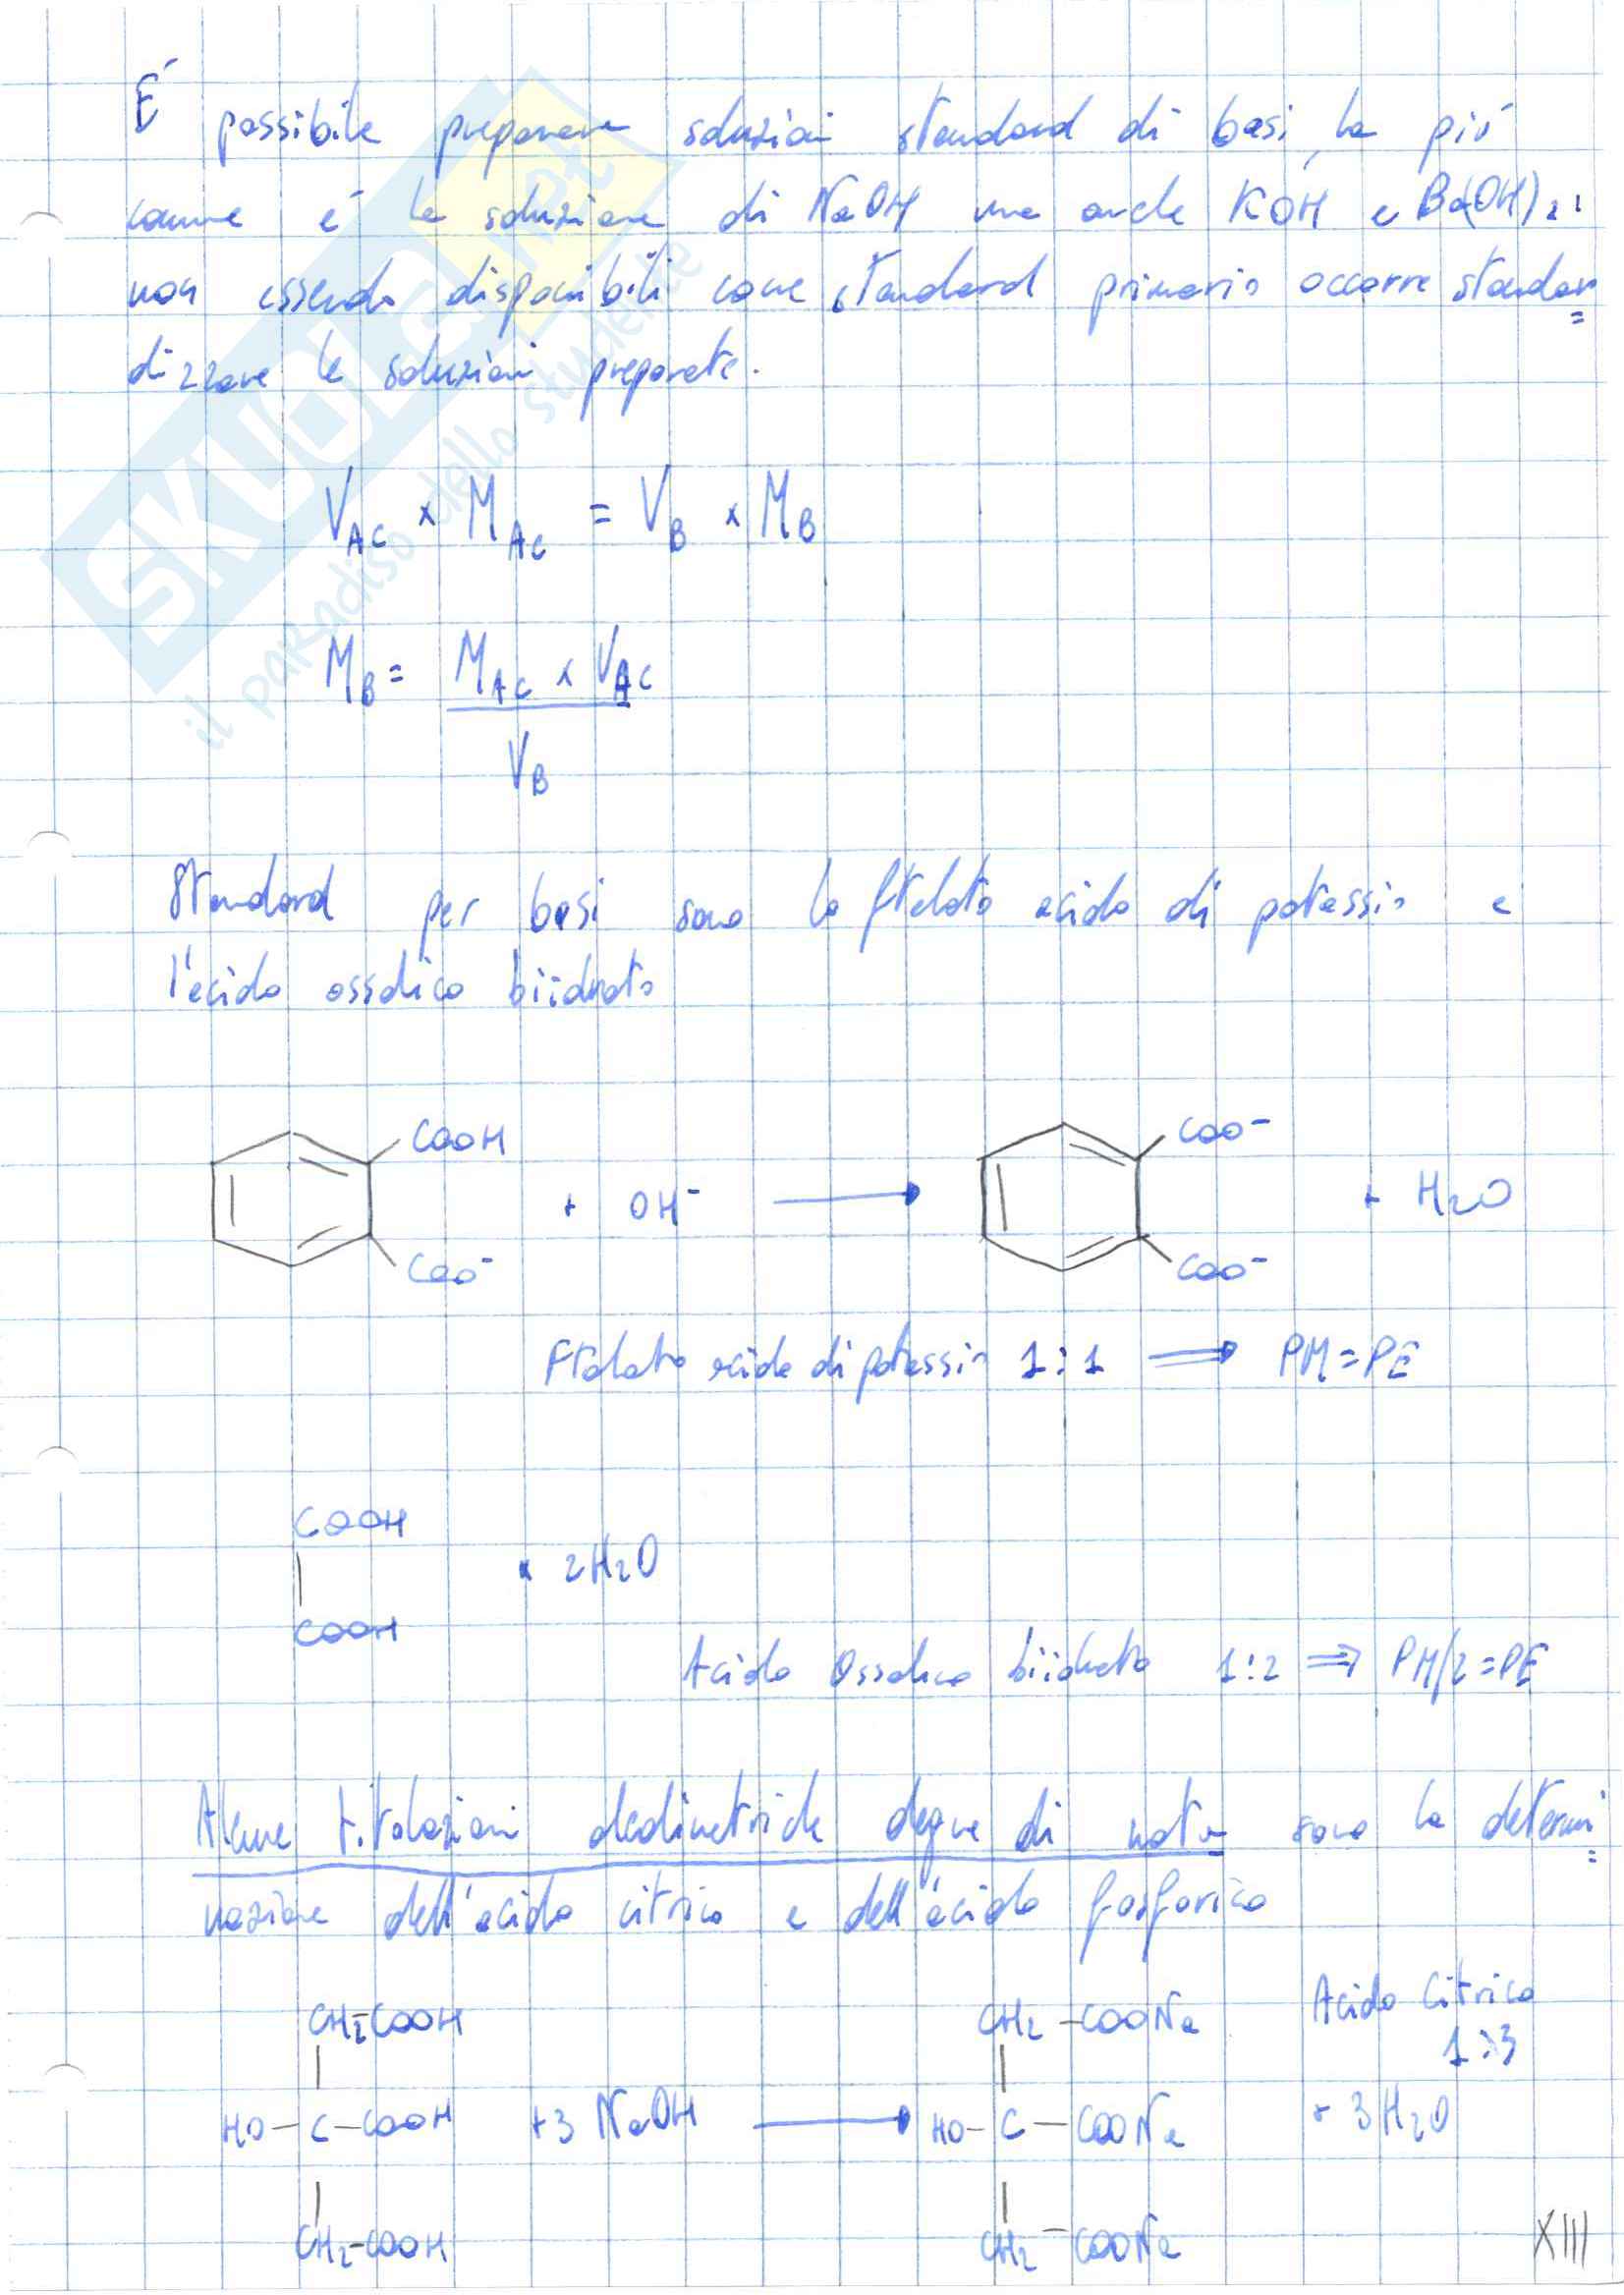 É possibile preparare soluzioni standard di basi, la più
comune é la soluzione di NaOH ma anche KOH e Ba(OH)2:
non essendo disponibili come standard primario occorre standar=
dizzare le soluzioni preparate.
VAC x MAC = VB x MB
MB = MAC x VAC
VB
Standard per basi sono lo ftalato acido di potassio e
l'acido ossalico biidrato
COOH
COO-
+ OH- → + H2O
COO-
COO-
Ftalato acido di potassio 1:1 ⟹ PM=PE
COOH
|
COOH
x 2H2O
Acido Ossalico biidrato 1:2 ⟹ PM/2=PE
Alcune titolazioni alcalimetriche degne di nota sono la determi=
nazione dell'acido citrico e dell'acido fosforico
CH2-COOH CH2-COONa Acido Citrico
1:3
HO-C-COOH +3 NaOH → HO-C-COONa + 3H2O
CH2-COOH CH2-COONa
XIII
SKUOLA.net
il paradiso dello studente